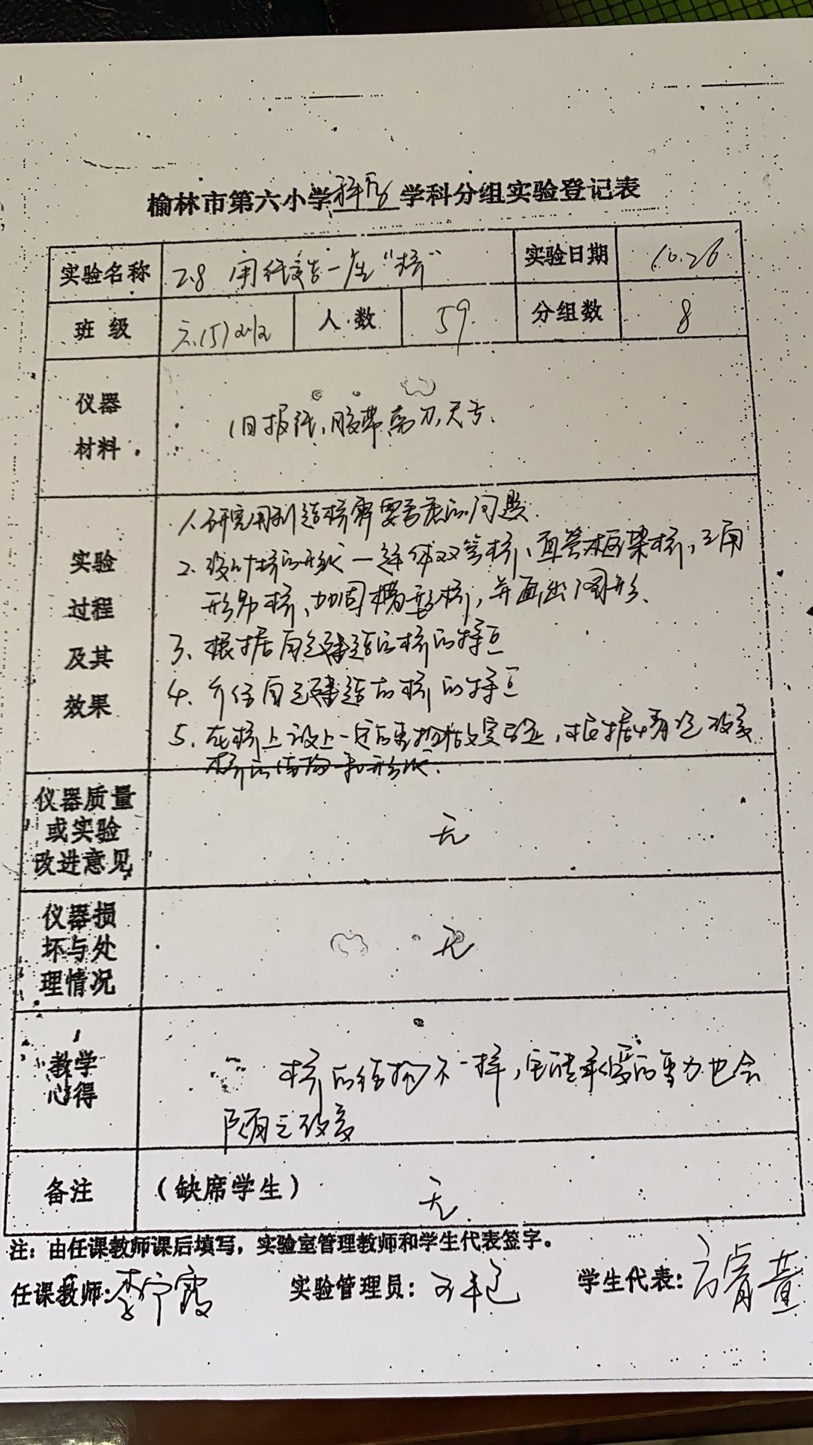 榆林市第六小学科学学科分组实验登记表
实验名称 2.8 用纸造一座“桥” 实验日期 10.26
班级 六(5)班 人数 59 分组数 8
仪器材料 旧报纸、胶带、剪刀、尺子、
实验过程及其效果
1、研究用到造桥需要考虑的问题
2、设计桥的形状一 双管桥、直管框架桥、三角
形 桥、加固 形桥，并画出图形、
3、根据自己建造的桥的特点
4、介绍自己建造的桥的特点
5、在桥上放上一定的重物 实验，根据情况改变
桥的结构和形状.
仪器质量或实验改进意见 无
仪器损坏与处理情况 无
教学心得 桥的结构不一样，它能承受的重力也会
随之改变
备注 （缺席学生） 无
注：由任课教师课后填写，实验室管理教师和学生代表签字。
任课教师：李宁霞 实验管理员： 学生代表：